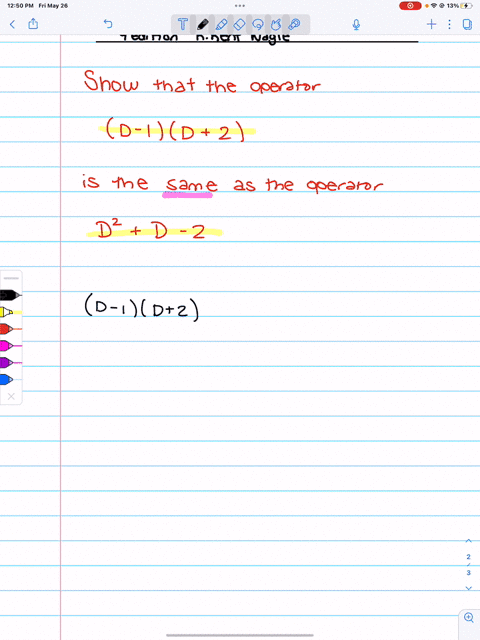 12:50 PM Fri May 26
13%
Show that the operator
(D-1)(D+2)
is the same as the operator
D² + D - 2
(D-1)(D+2)
2
3